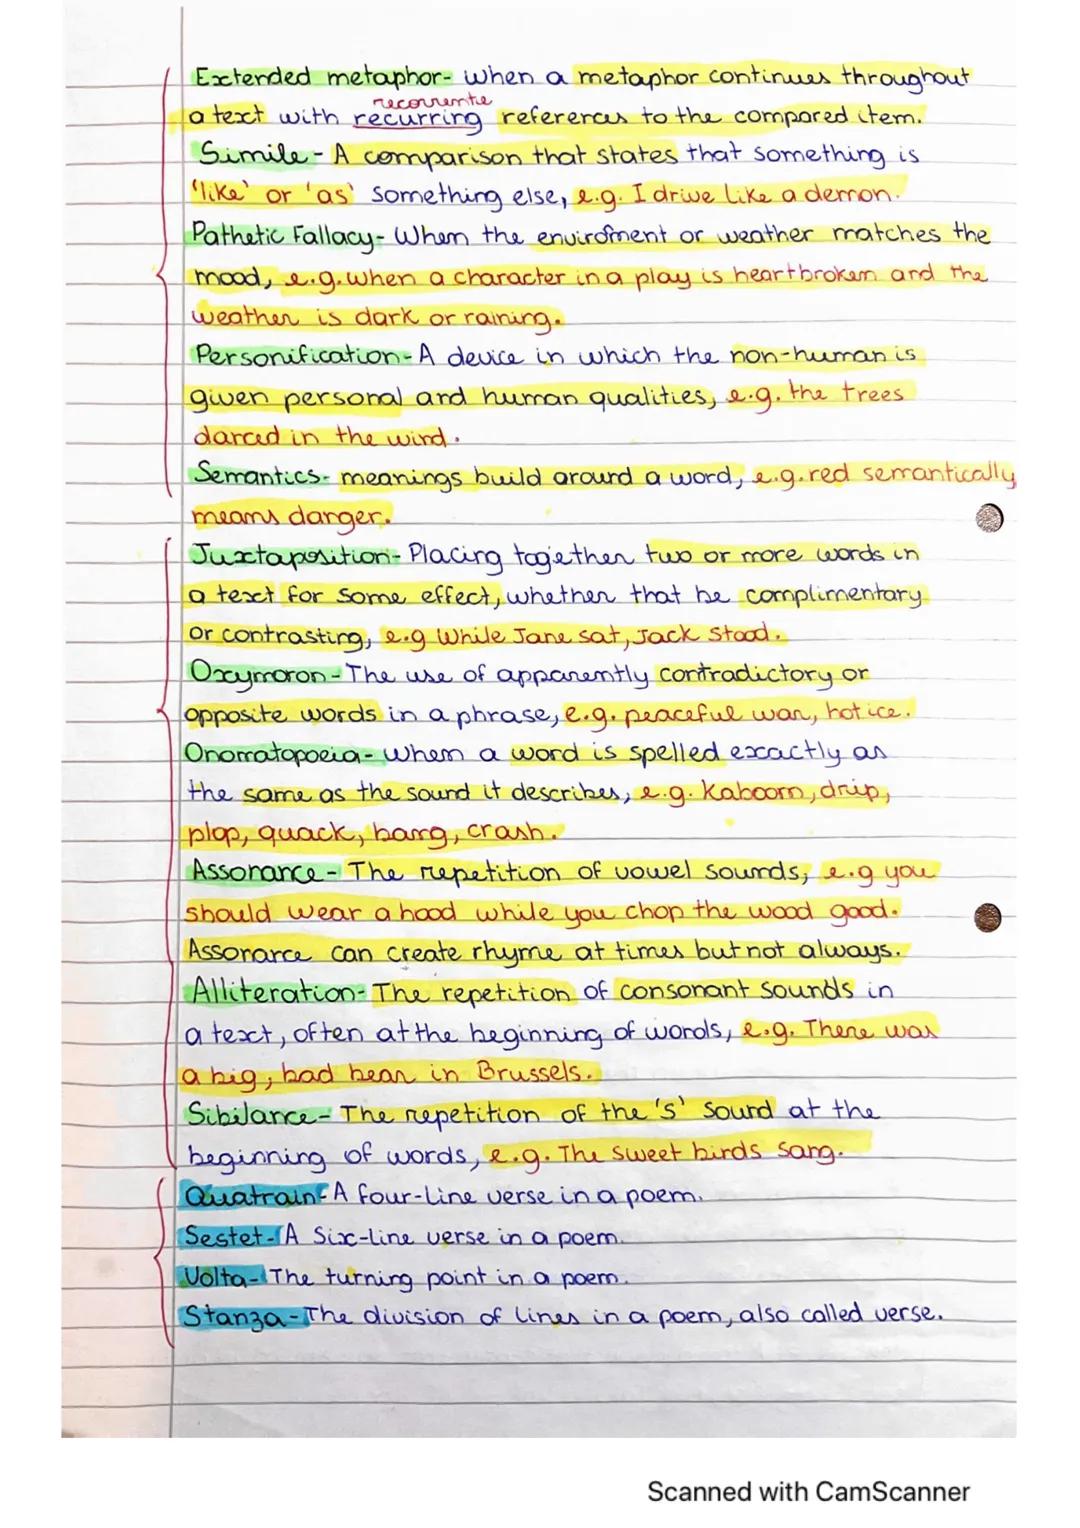 Extended metaphor- when a metaphor continues throughout
recorrente
a text with recurring references to the compared item.
Simile - A comparison that states that something is
'like' or 'as' something else, e.g. I drive like a demon.
Pathetic Fallacy- When the enviroment or weather matches the
mood, e.g. when a character in a play is heartbroken and the
weather is dark or raining.
Personification- A device in which the non-human is
given personal and human qualities, e.g. the trees
danced in the wind.
Semantics- meanings build around a word, e.g. red semantically
means danger.
Juxtaposition- Placing together two or more words in
a text for some effect, whether that be complimentary
or contrasting, e.g While Jane sat, Jack stood.
Oxymoron- The use of apparently contradictory or
opposite words in a phrase, e.g. peaceful war, hot ice.
Onomatopoeia- When a word is spelled exactly as
the same as the sound it describes, e.g. Kaboom, drip,
plop, quack, bang, crash.
Assonance- The repetition of vowel sounds, e.g you
should wear a hood while you chop the wood good.
Assonance can create rhyme at times but not always.
Alliteration- The repetition of consonant sounds in
a text, often at the beginning of words, e.g. There was
a big, bad bear in Brussels.
Sibilance- The repetition of the 's' sound at the
beginning of words, e.g. The sweet birds sang.
Quatrain- A four-line verse in a poem.
Sestet- A Six-line verse in a poem.
Volta- The turning point in a poem.
Stanza- The division of lines in a poem, also called verse.
Scanned with CamScanner